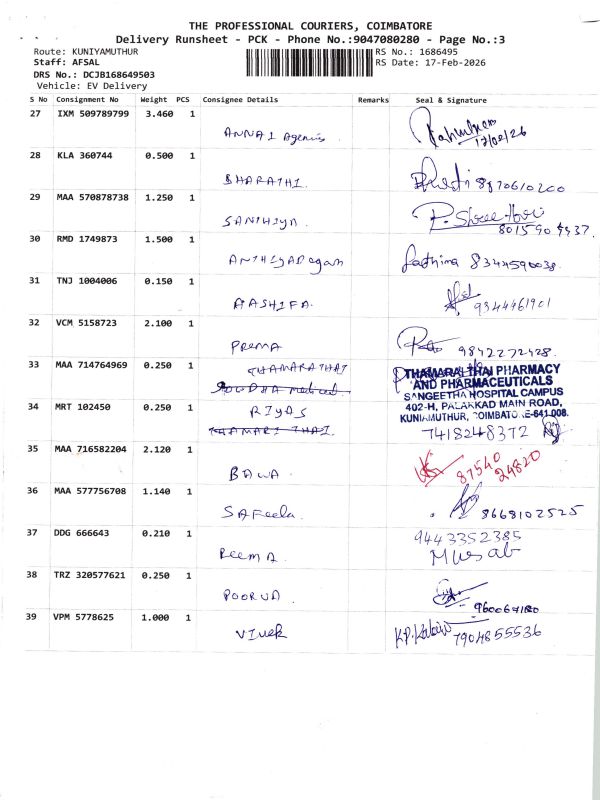 THE PROFESSIONAL COURIERS, COIMBATORE
Delivery Runsheet - PCK - Phone No.:9047080280 - Page No.:3
Route: KUNIYAMUTHUR RS No.: 1686495
Staff: AFSAL RS Date: 17-Feb-2026
DRS No.: DCJB168649503
Vehicle: EV Delivery
S No Consignment No Weight PCS Consignee Details Remarks Seal & Signature
27 IXM 509789799 3.460 1
ANNAI Agencies 17/02/26
28 KLA 360744 0.500 1
BHARATHI. 8870610200
29 MAA 570878738 1.250 1
SANTHIYA P. Shree
30 RMD 1749873 1.500 1 801590
ANTHIYAR Fathima 8344590038.
31 TNJ 1004006 0.150 1
AASHIFA. 9344461901
32 VCM 5158723 2.100 1
PREMA 9842272428.
33 MAA 714764969 0.250 1 THAMARATHAI
THAMARAI THAI PHARMACY
AND PHARMACEUTICALS
SANGEETHA HOSPITAL CAMPUS
34 MRT 102450 0.250 1 RIYAS 402-H, PALAKKAD MAIN ROAD,
KUNIAMUTHUR, COIMBATORE-641 008.
THAMARI THAI. 7418248372
35 MAA 716582204 2.120 1
BAWA 87540
24820
36 MAA 577756708 1.140 1
SAFeela. 8668102525
37 DDG 666643 0.210 1 9443352385
ReemA. Musab
38 TRZ 320577621 0.250 1
POORVA
39 VPM 5778625 1.000 1
Vivek K.P. 7904855536